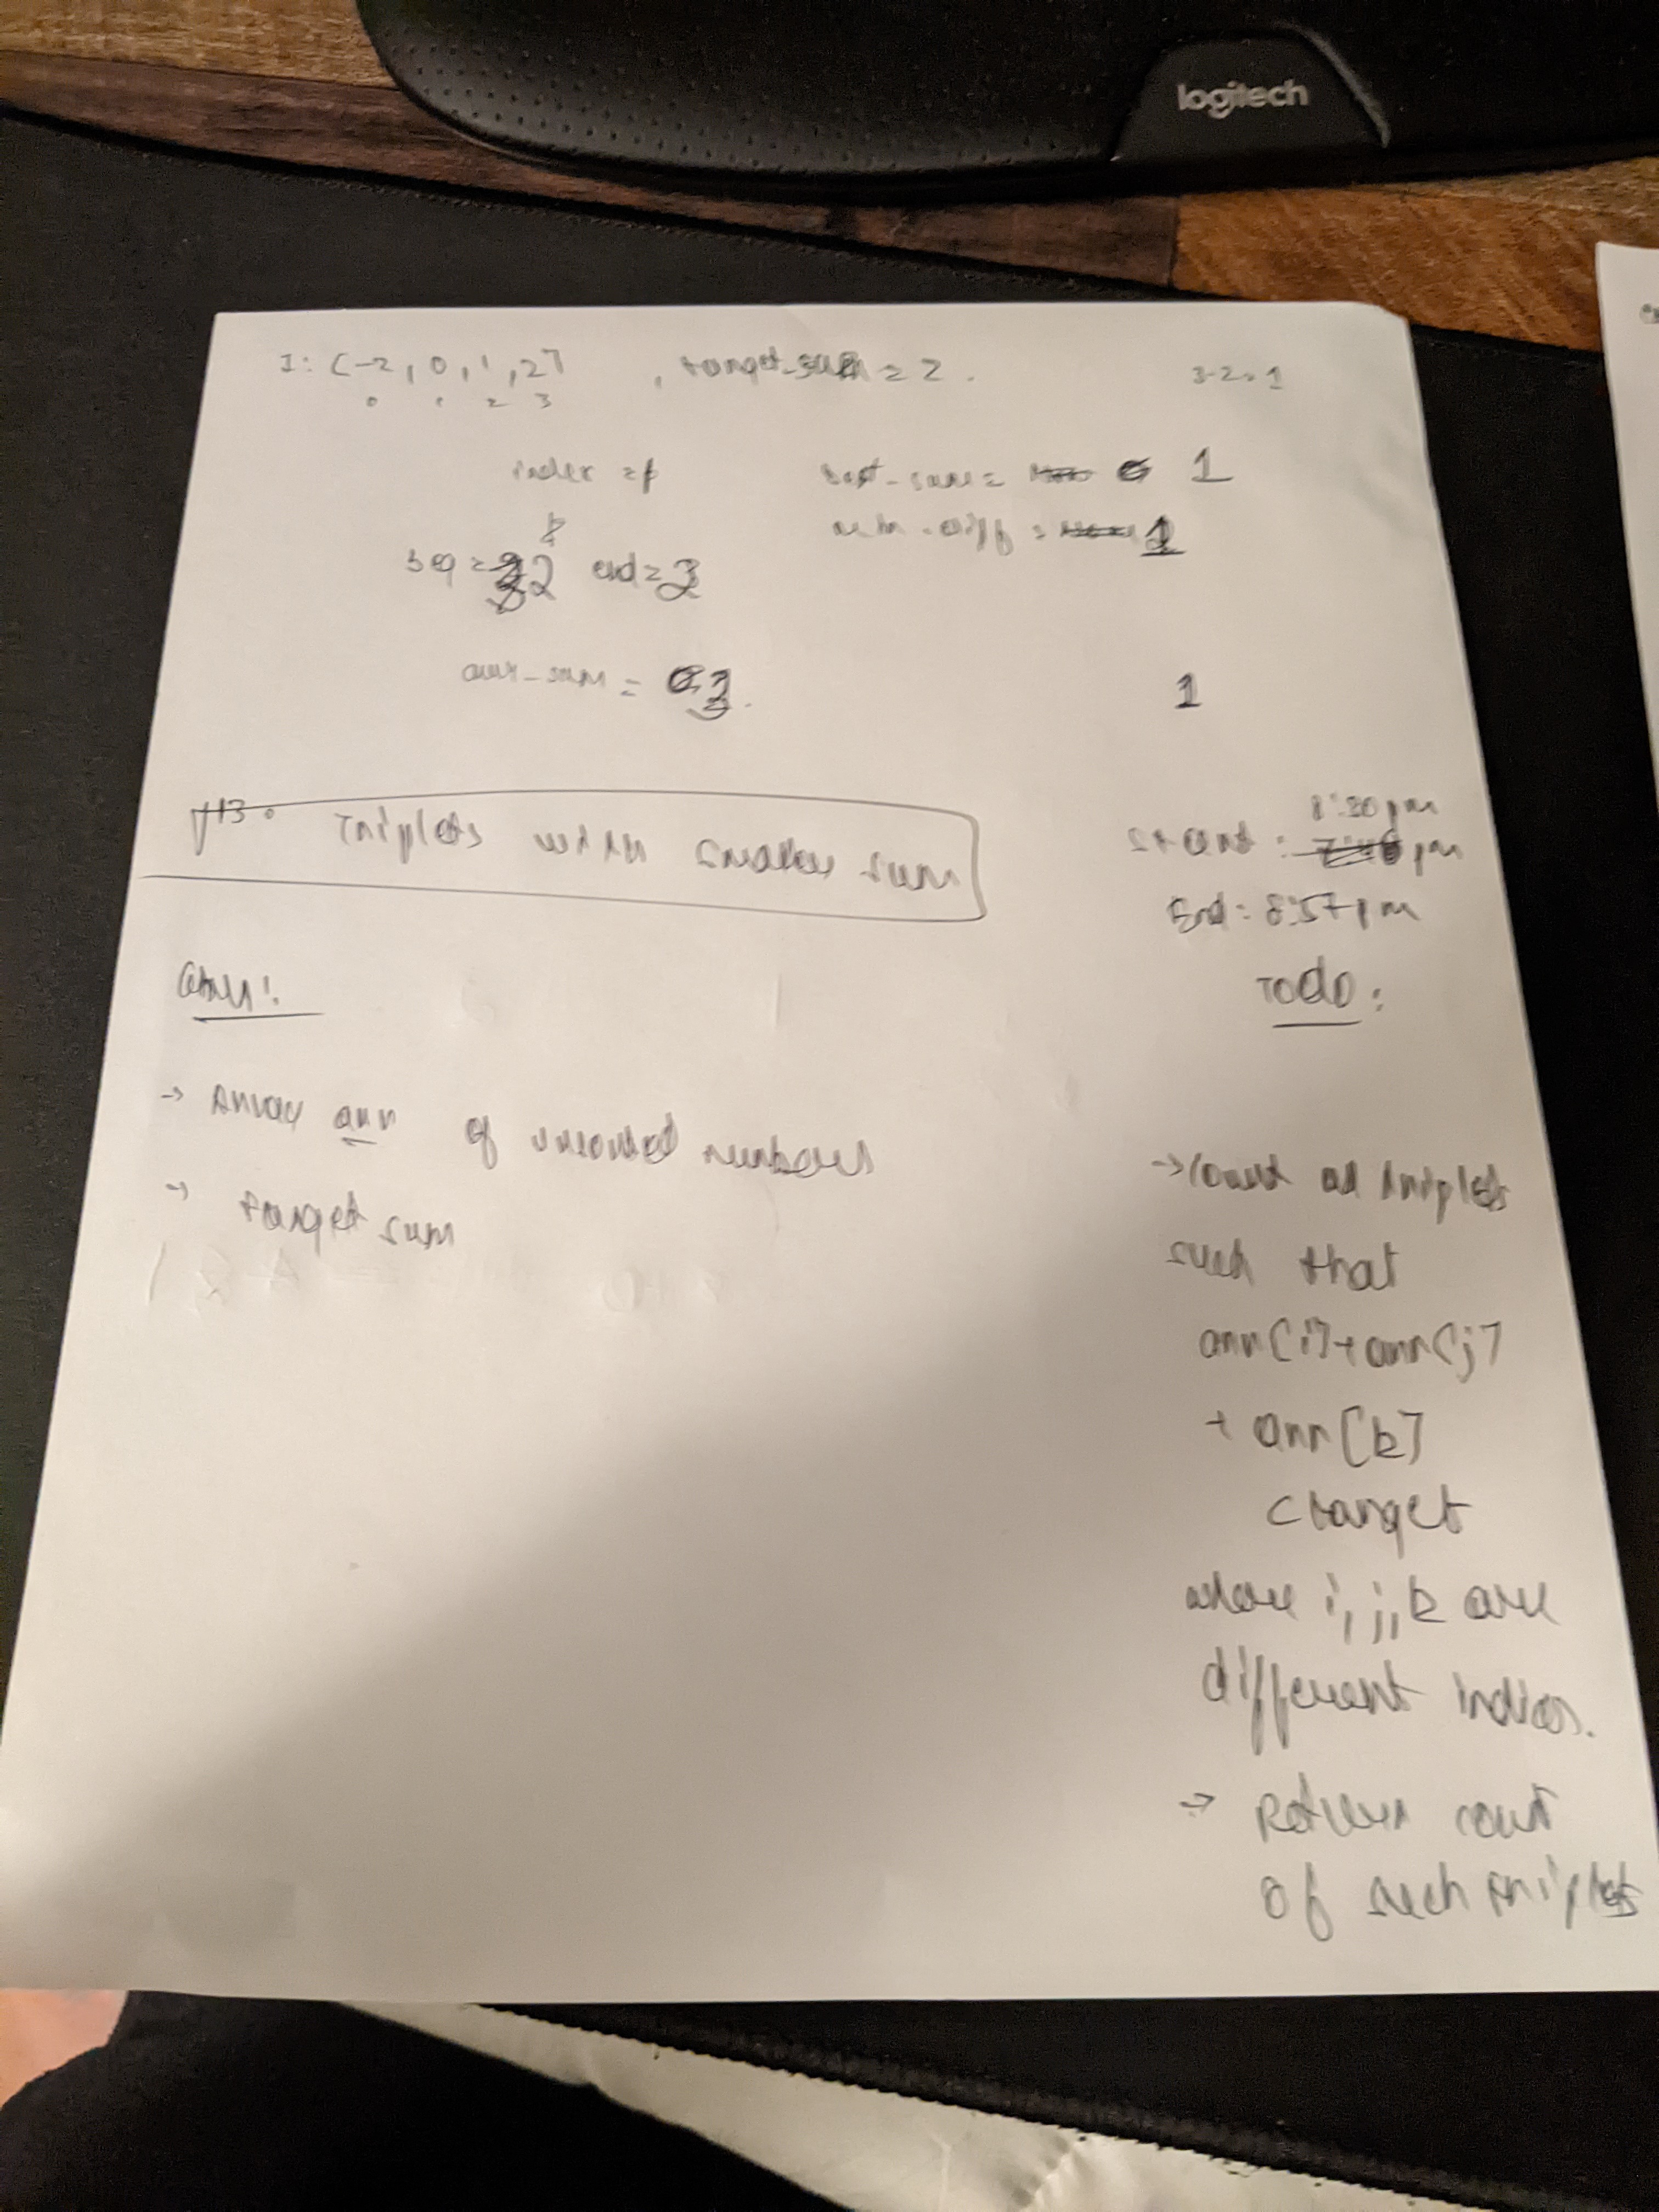 logitech
I: [-2, 0, 1, 2] , target_sum = 2. 3-2=1
0 1 2 3
index = 1
best_sum = 0 1
min_diff = 1
beg = 2 end = 3
curr_sum = 0 3.
1
Triplets with smaller sum
8:30 pm
Start: pm
End: 8:57 pm
Given:
Todo:
→ Array arr of unsorted numbers
→ target sum
→ Count all triplets
such that
arr[i] + arr[j]
+ arr[k]
< target
where i, j, k are
different indices.
→ Return count
of such triplets